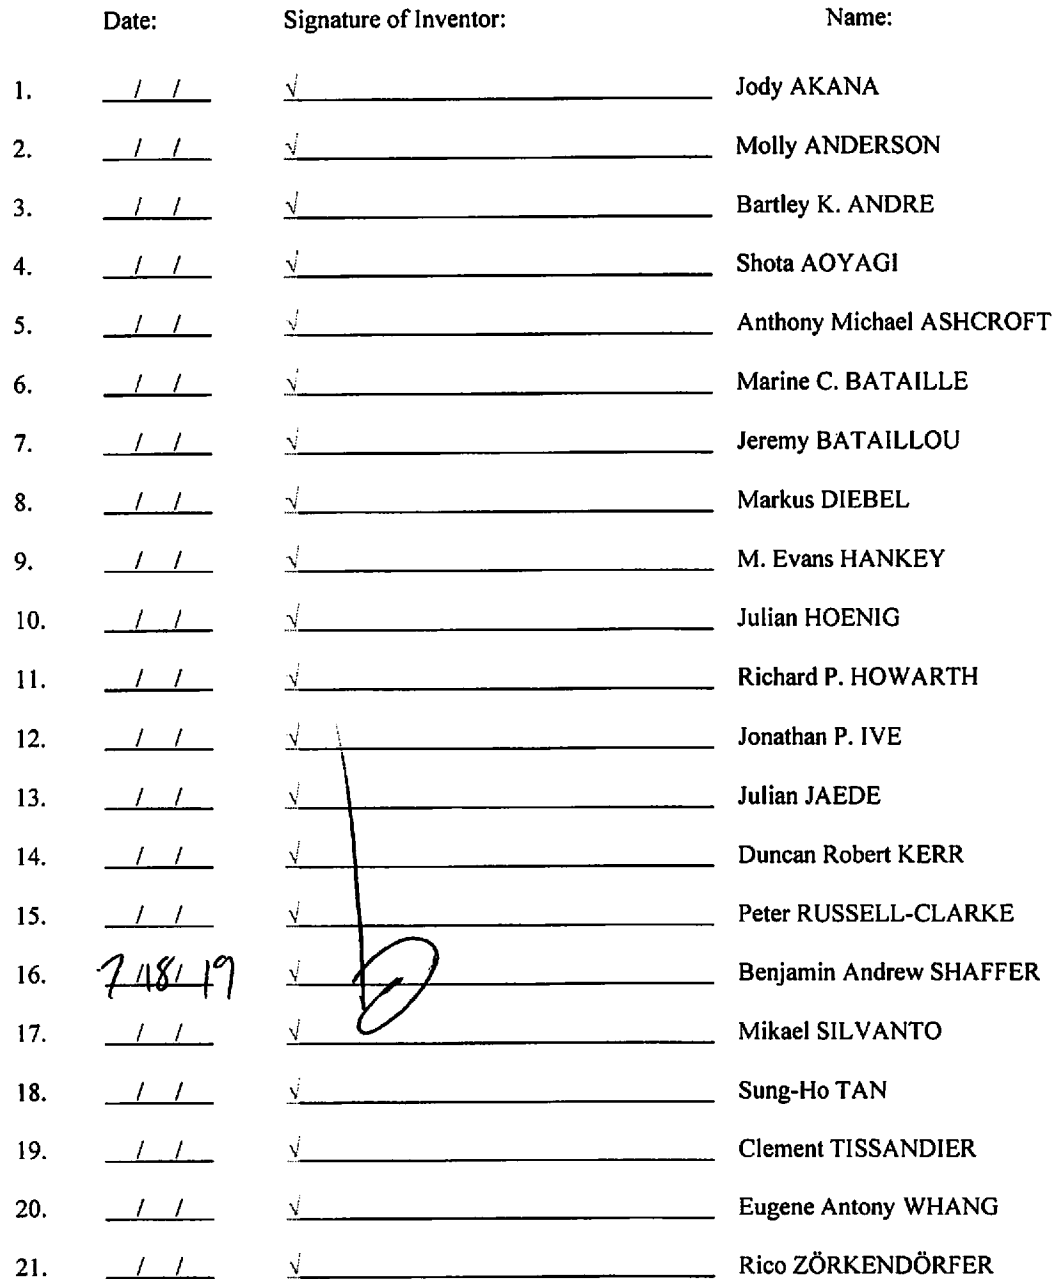 Date: Signature of Inventor: Name:
1. / / √ Jody AKANA
2. / / √ Molly ANDERSON
3. / / √ Bartley K. ANDRE
4. / / √ Shota AOYAGI
5. / / √ Anthony Michael ASHCROFT
6. / / √ Marine C. BATAILLE
7. / / √ Jeremy BATAILLOU
8. / / √ Markus DIEBEL
9. / / √ M. Evans HANKEY
10. / / √ Julian HOENIG
11. / / √ Richard P. HOWARTH
12. / / √ Jonathan P. IVE
13. / / √ Julian JAEDE
14. / / √ Duncan Robert KERR
15. / / √ Peter RUSSELL-CLARKE
16. 7/18/19 √ Benjamin Andrew SHAFFER
17. / / √ Mikael SILVANTO
18. / / √ Sung-Ho TAN
19. / / √ Clement TISSANDIER
20. / / √ Eugene Antony WHANG
21. / / √ Rico ZÖRKENDÖRFER